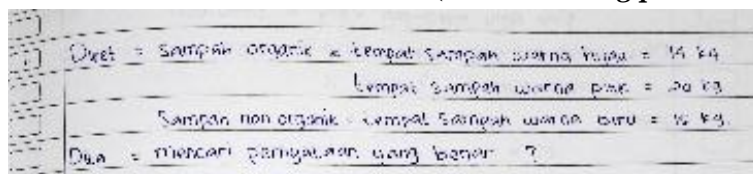 Diket = sampah organik = tempat sampah warna hijau = 14 kg
tempat sampah warna pink = 20 kg
Sampah non organik = tempat sampah warna biru = 15 kg.
Dita = mencari pernyataan yang benar ?